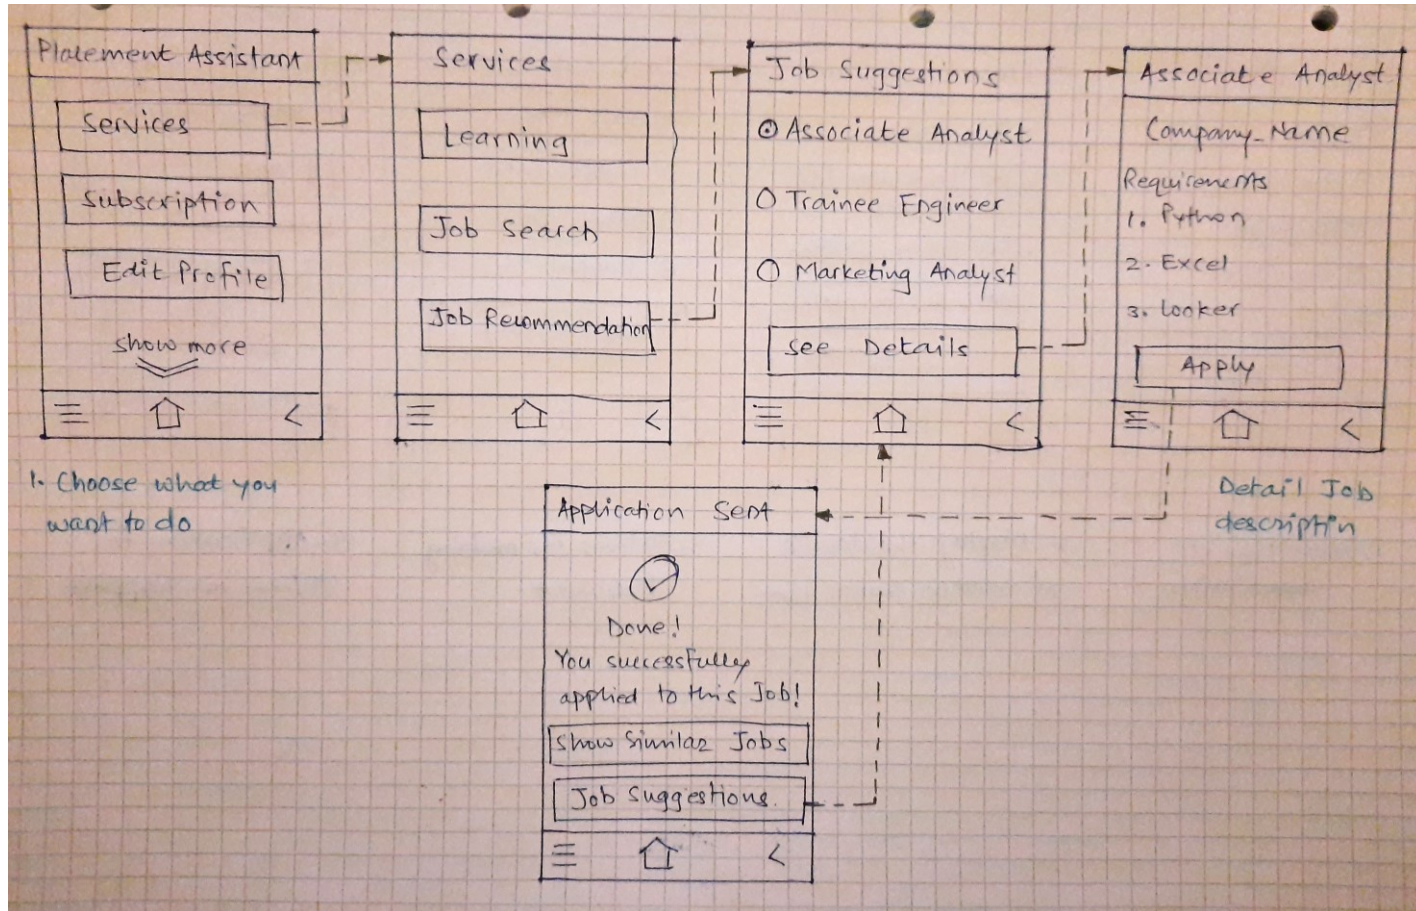 Placement Assistant
Services
Subscription
Edit Profile
show more
1. Choose what you
want to do
Services
Learning
Job Search
Job Recommendation
Job Suggestions
Associate Analyst
Trainee Engineer
Marketing Analyst
See Details
Associate Analyst
Company_Name
Requirements
1. Python
2. Excel
3. Looker
Apply
Detail Job
descriptin
Application Sent
Done!
You successfully
applied to this Job!
Show Similar Jobs
Job Suggestions